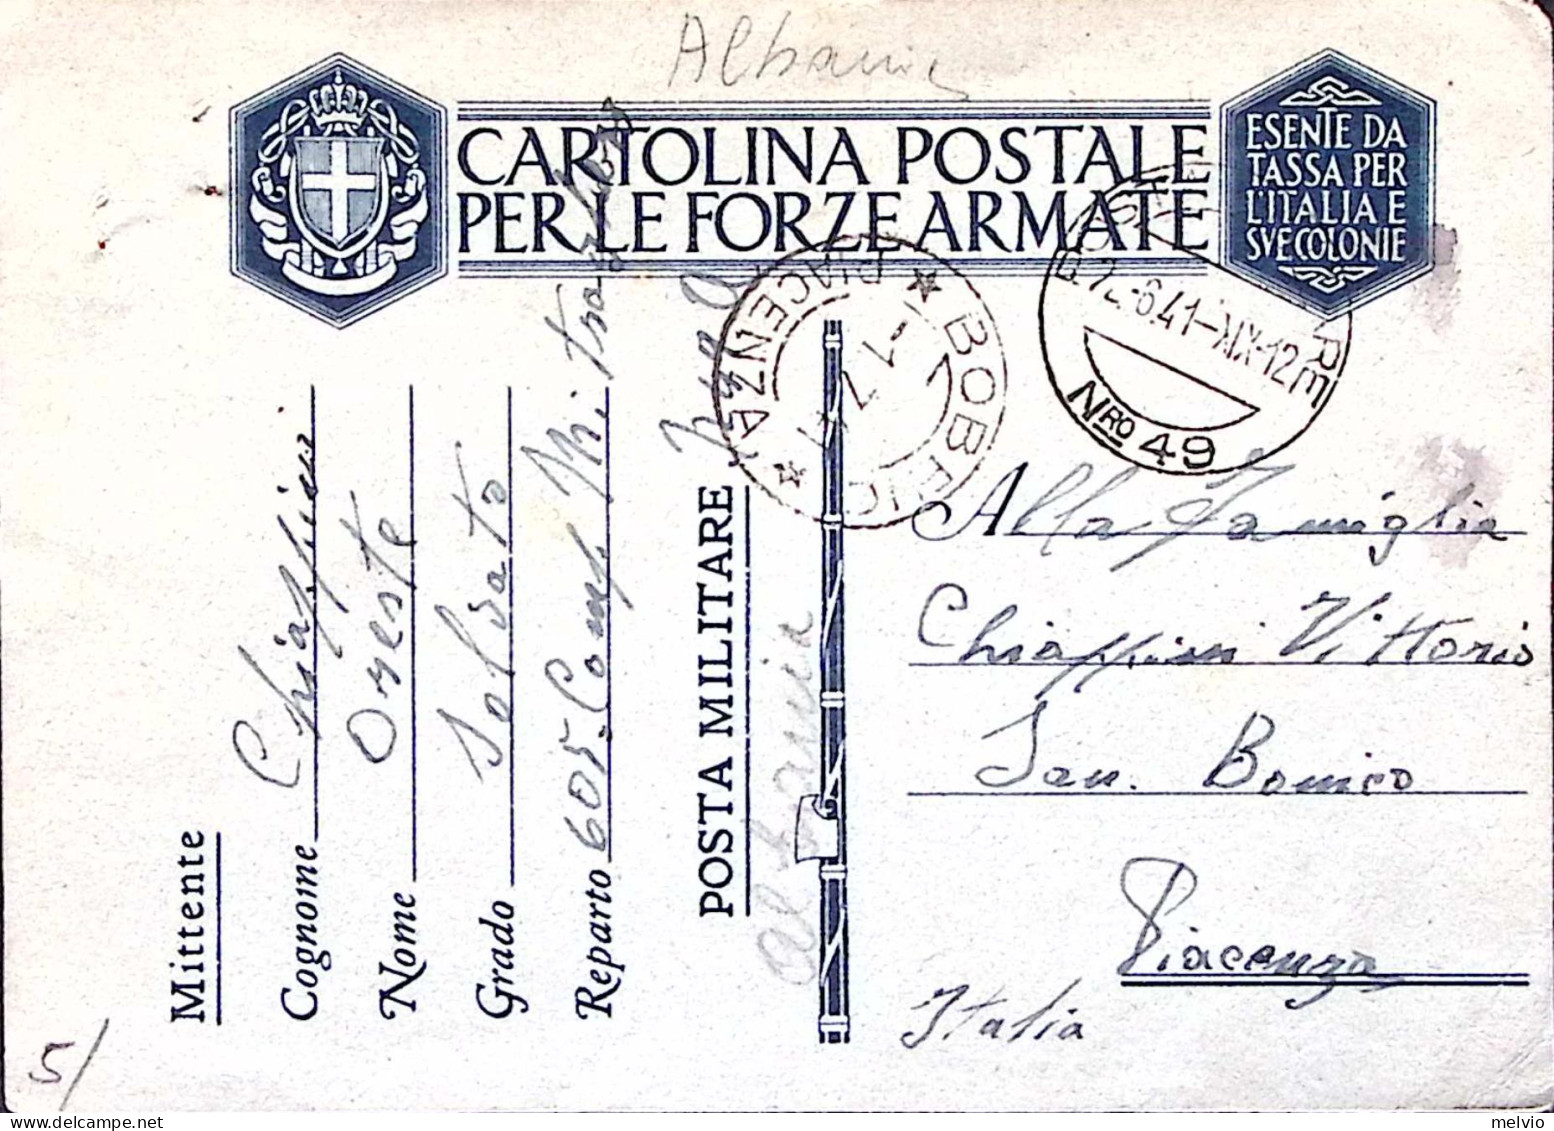 Albania
CARTOLINA POSTALE
PER LE FORZE ARMATE
ESENTE DA
TASSA PER
L'ITALIA E
SVE COLONIE
Mittente
Cognome Chiappini
Nome Oreste
Grado Soldato
Reparto 605 Comp Mitraglieri
POSTA MILITARE
Albania
BOBBIO
PIACENZA
-1 7 41
POSTA MILITARE
22-6.41-XIX-12
NRO 49
Alla Famiglia
Chiappini Vittorio
San. Bonico
Piacenza
Italia
5/
melvio